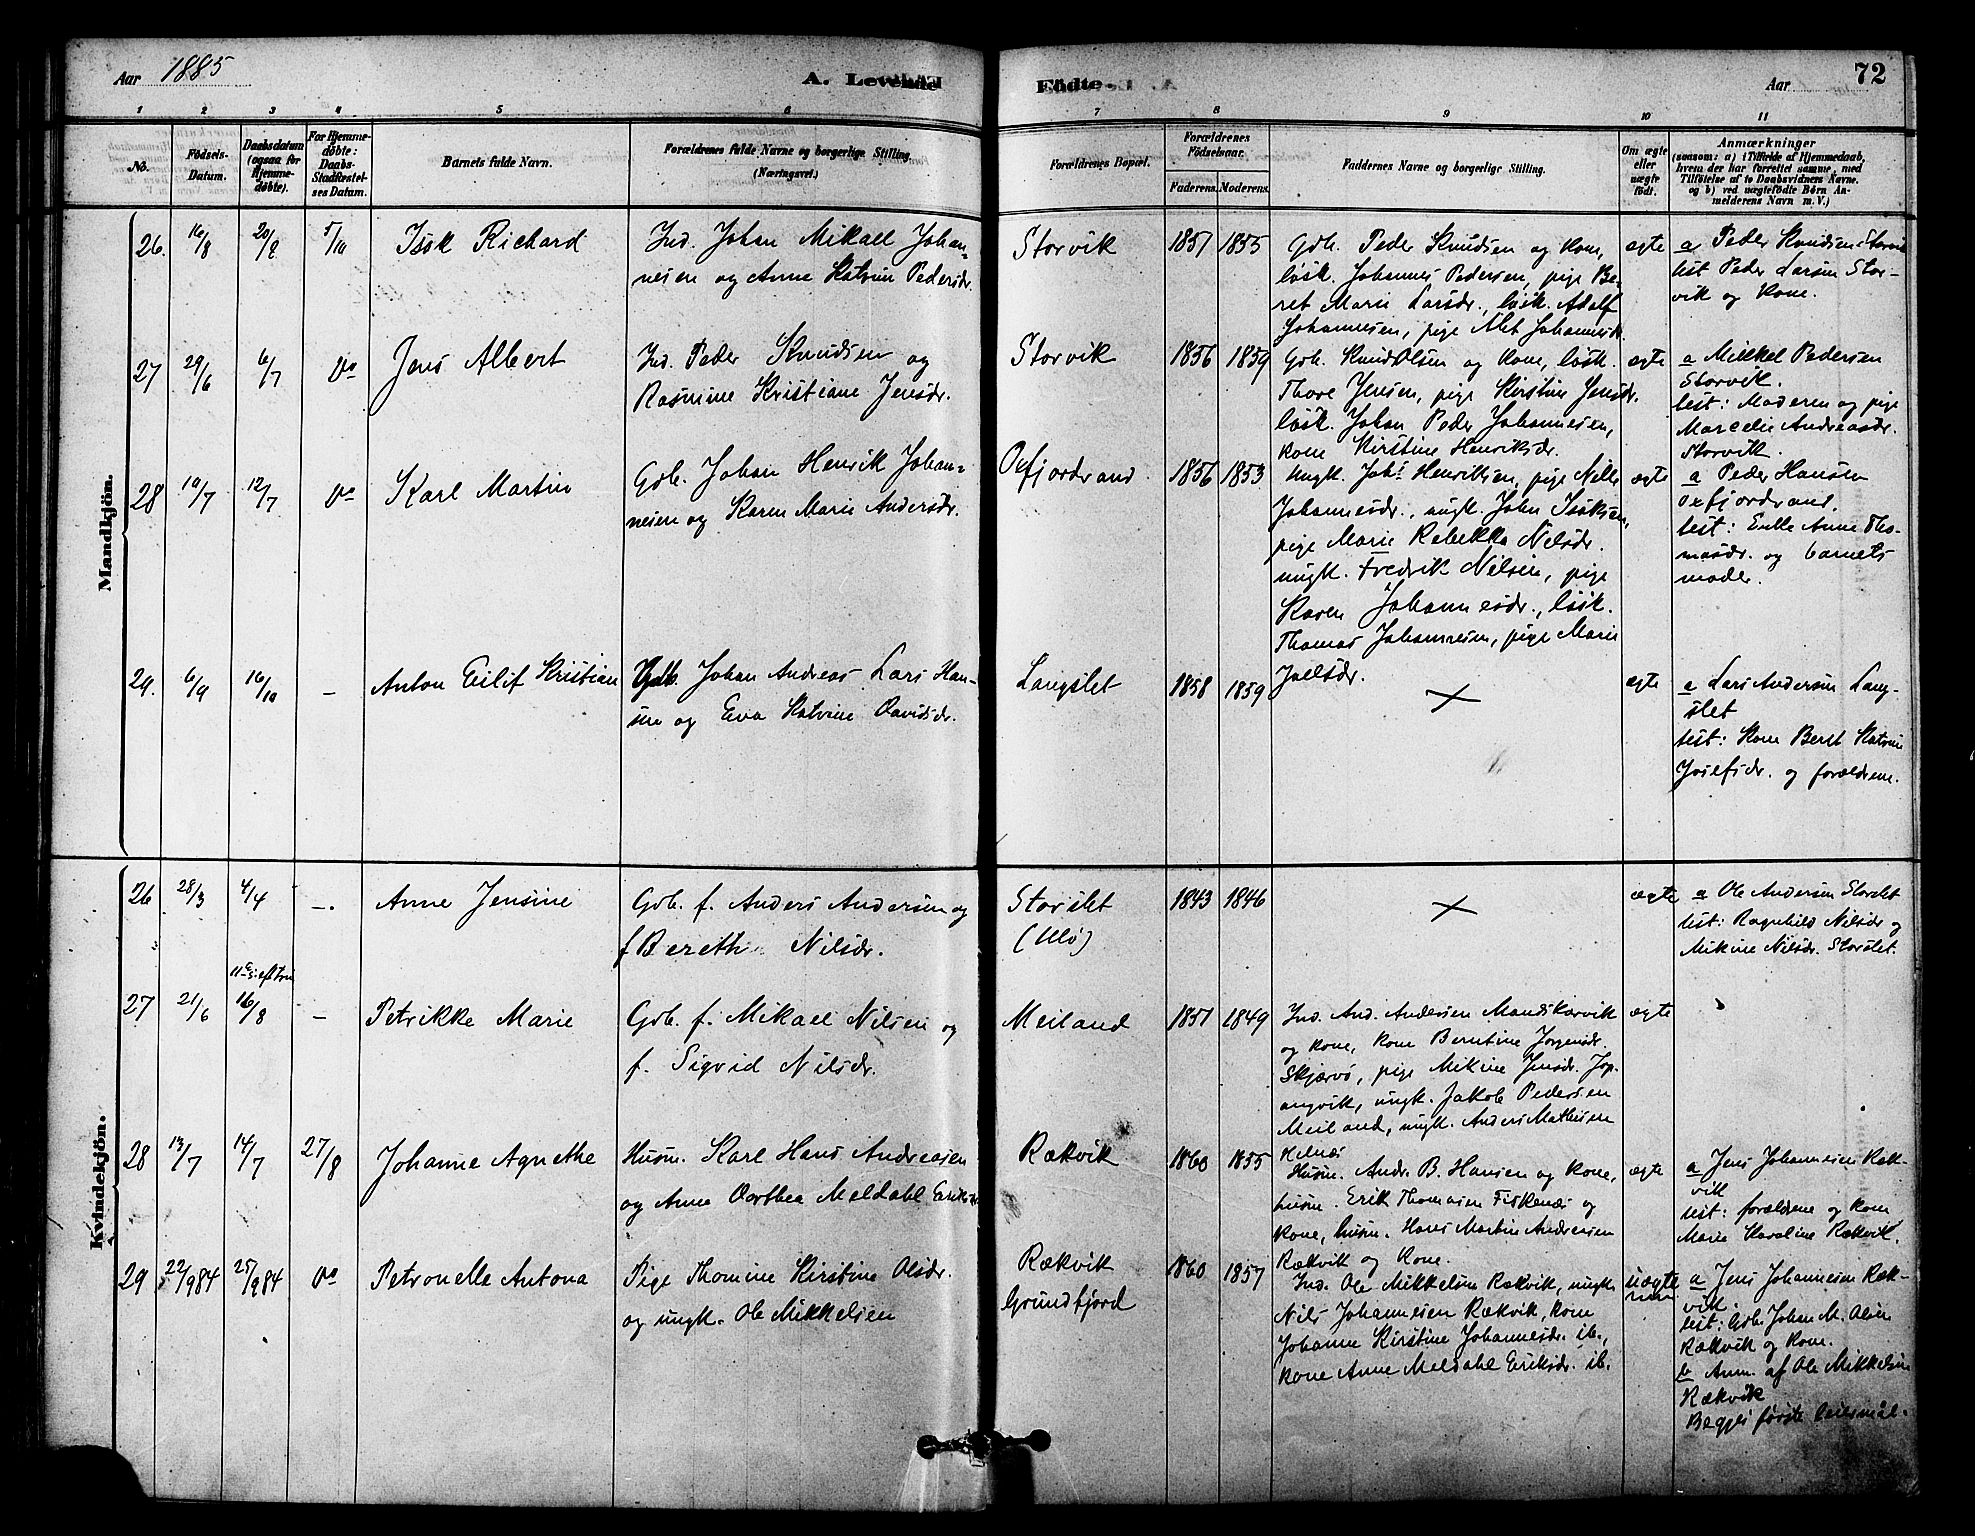 Aar 1885
A. Levende
Födte.
Aar
72
1 2 3 4 5 6 7 8 9 10 11
No.
Födsels-
Datum.
Daabsdatum
(ogsaa for
Hjemme-
döbte).
For Hjemme-
döbte:
Daabs-
Stadfæstel-
ses Datum.
Barnets fulde Navn.
Forældrenes fulde Navne og borgerlige Stilling.
(Næringsvei.)
Forældrenes Bopæl.
Forældrenes
Födselsaar.
Faderens. Moderens.
Faddernes Navne og borgerlige Stilling.
Om ægte
eller
uægte
födt.
Anmærkninger
(saasom: a) i Tilfælde af Hjemmedaab,
hvem der har forrettet samme, med
Tilföielse af to Daabsvidners Navne,
og b) ved uægtefödte Börn An-
melderens Navn m. V.)
Mandkjön.
26. 16/8 20/8 5/10 Isak Richard
Ind. Johan Mikael Johan-
nesen og Anne Katrin Pedersdr.
Storvik 1857 1855
Gdb. Peder Knudsen og kone,
løsk. Johannes Pedersen, pige Be-
ret Marie Larsdr., løsk. Adolf
Johannesen, pige Alet Johannesdr.
ægte
a Peder Knudsen Storvik
test Peder Larsen Stor-
vik og kone.
27 29/6 6/7 Do Jens Albert
Ind. Peder Knudsen og
Rasmine Kristiane Jensdr.
Storvik 1856 1859
Gdb. Knud Olsen og kone, løsk.
Thore Jensen, pige Kirstine Jensdr.
løsk. Johan Peder Johannesen,
kone Kirstine Henriksdr.
ægte
a Mikkel Pedersen
Storvik.
test: Moderen og pige
Marcelie Andreasdr.
Storvik.
28 10/7 12/7 Do Karl Martin
Gdb. Johan Henrik Johan-
nesen og Karen Marie Andersdr.
Oxfjordvand 1856 1853
Ungk. Johs Henriksen, pige Nille
Johannesdr., ungk. John Isaksen,
pige Marie Rebekka Nilsdr.
ungk. Fredrik Nilsen, pige
Karen Johannesdr., løsk.
Thomas Johannesen, pige Marie
Joelsdr.
ægte
a Peder Hansen
Oxfjordvand.
test: Enke Anne Tho-
masdr. og barnets
moder.
29. 6/9 16/10 - Anton Eilif Kristian
Gdb. Johan Andreas Lars Han-
sen og Eva Katrine Davidsdr.
Langslet 1858 1859
ægte
a Lars Andersen Lang-
slet
test: Kone Beret Katrine
Josefsdr. og forældrene.
Kvindekjön.
26 28/3 4/4 -. Anne Jensine
Gdb. f. Anders Andersen og
f Bereth Nilsdr.
Storslet
(Ulö)
1843 1846
ægte
a Ole Andersen Storslet
test: Ragnhild Nilsdr og
Mikine Nilsdr. Storslet.
27 21/6 16/8 - Petrikke Marie
Gdb. f. Mikael Nilsen og
f. Sigrid Nilsdr.
Meiland 1851 1849
Ind. And. Andersen Mandskarvik
og kone, kone Berntine Jørgensdr.
Skjærvö, pige Mikine Jensdr. Jop-
angvik, ungk. Jakob Pedersen
Meiland, ungk. Anders Mathisen
ægte
28 13/7 14/7 27/8 Johanne Agnethe
Husm. Karl Hans Andreasen
og Anne Dorthea Meldahl Eriksdr
Rækvik 1860 1855
Husm. Andr. B. Hansen og kone,
husm. Erik Thomasen Fiskenæs og
kone, husm. Hans Martin Andreasen
Rækvik og kone.
ægte
a Jens Johannesen Ræk-
vik
test: forældrene og kone
Marie Karoline Rækvik.
29 22/9 84 25/9 84 Do Petronelle Antona
Pige Thomine Kirstine Olsdr.
og ungk. Ole Mikkelsen
Rækvik
Grundfjord
1860 1857
Ind. Ole Mikkelsen Rækvik, ungk.
Nils Johannesen Rækvik, kone
Johanne Kirstine Johannesdr. ib.,
kone Anne Meldahl Eriksdr. ib.
uægte
a Jens Johannesen Ræk-
vik.
test: Gdb. Johan M. Olsen
Rækvik og kone.
b Anm. af Ole Mikkelsen
Rækvik
Begges første leiermål.